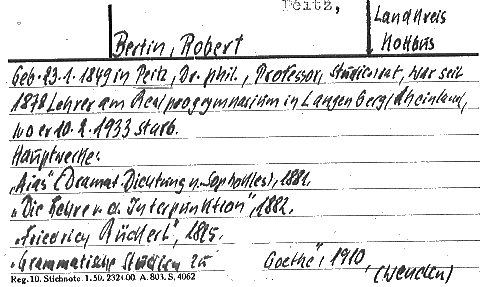 Peitz,
Landkreis
Kottbus
Bertin, Robert
Geb. 23.1.1849 in Peitz, Dr. phil., Professor, Studienrat, war seit
1878 Lehrer am Realprogymnasium in Langenberg/Rheinland,
wo er 10.2.1933 starb.
Hauptwerke:
„Aias" (Dramat. Dichtung n. Sophokles), 1881.
„Die Lehre v. d. Interpunktion", 1882.
„Friedrich Rückert", 1895.
„Grammatische Studien zu Goethe", 1910
(Wenden)
Reg. 10. Stichnote. 1. 50. A. 803. S. 4062